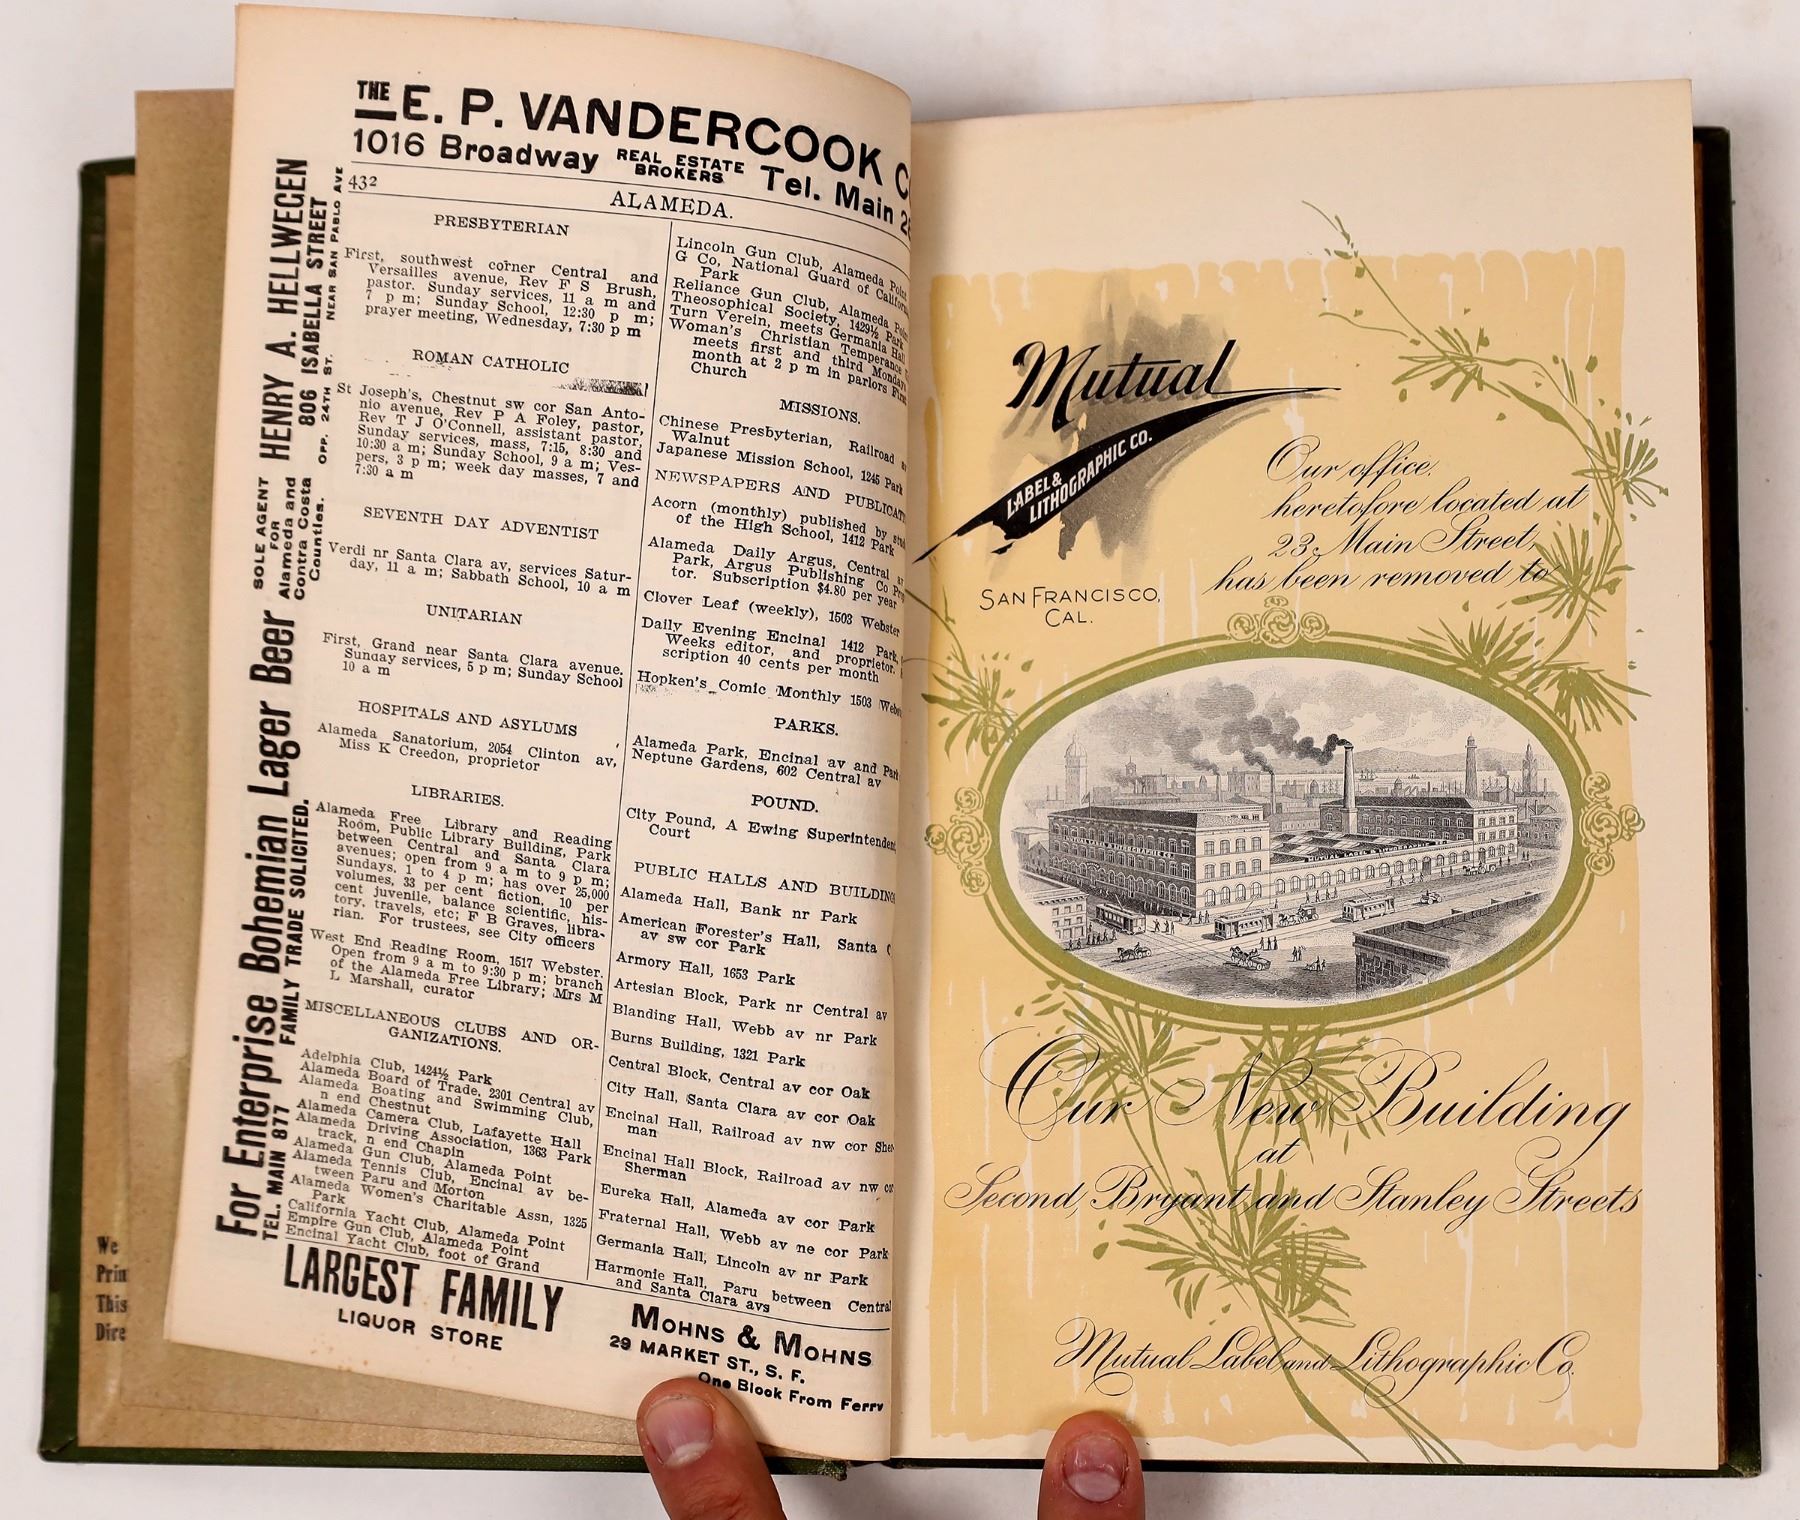 THE E. P. VANDERCOOK
1016 Broadway REAL ESTATE BROKERS Tel. Main
432
ALAMEDA.
PRESBYTERIAN
First, southwest corner Central and
Versailles avenue, Rev F S Brush,
pastor. Sunday services, 11 a m and
7 p m; Sunday School, 12:30 p m;
prayer meeting, Wednesday, 7:30 p m
ROMAN CATHOLIC
St Joseph's, Chestnut sw cor San Anto-
nio avenue, Rev P A Foley, pastor,
Rev T J O'Connell, assistant pastor,
Sunday services, mass, 7:15, 8:30 and
10:30 a m; Sunday School, 9 a m; Ves-
pers, 3 p m; week day masses, 7 and
7:30 a m
SEVENTH DAY ADVENTIST
Verdi nr Santa Clara av, services Satur-
day, 11 a m; Sabbath School, 10 a m
UNITARIAN
First, Grand near Santa Clara avenue.
Sunday services, 5 p m; Sunday School
10 a m
HOSPITALS AND ASYLUMS
Alameda Sanatorium, 2054 Clinton av,
Miss K Creedon, proprietor
LIBRARIES.
Alameda Free Library and Reading
Room, Public Library Building, Park
between Central and Santa Clara
avenues; open from 9 a m to 9 p m;
Sundays, 1 to 4 p m; has over 25,000
volumes, 33 per cent fiction, 10 per
cent juvenile, balance scientific, his-
tory, travels, etc; F B Graves, libra-
rian. For trustees, see City officers
West End Reading Room, 1517 Webster.
Open from 9 a m to 9:30 p m; branch
of the Alameda Free Library; Mrs M
L Marshall, curator
MISCELLANEOUS CLUBS AND OR-
GANIZATIONS.
Adelphia Club, 1424½ Park
Alameda Board of Trade, 2301 Central av
Alameda Boating and Swimming Club,
n end Chestnut
Alameda Camera Club, Lafayette Hall
Alameda Driving Association, 1363 Park
track, n end Chapin
Alameda Gun Club, Alameda Point
Alameda Tennis Club, Encinal av be-
tween Paru and Morton
Alameda Women's Charitable Assn, 1325
Park
California Yacht Club, Alameda Point
Empire Gun Club, Alameda Point
Encinal Yacht Club, foot of Grand
Lincoln Gun Club, Alameda Point
G Co, National Guard of California
Park
Reliance Gun Club, Alameda
Theosophical Society, 1429½ Park
Turn Verein, meets Germania Hall
Woman's Christian Temperance
meets first and third Mondays
month at 2 p m in parlors First
Church
MISSIONS.
Chinese Presbyterian, Railroad
Walnut
Japanese Mission School, 1245 Park
NEWSPAPERS AND
Acorn (monthly) published by
of the High School, 1412 Park
Alameda Daily Argus, Central
Park, Argus Publishing Co
tor. Subscription $4.80 per year
Clover Leaf (weekly), 1503 Webster
Daily Evening Encinal 1412 Park,
Weeks editor, and proprietor.
scription 40 cents per month
Hopken's Comic Monthly 1503
PARKS.
Alameda Park, Encinal av and
Neptune Gardens, 602 Central av
POUND.
City Pound, A Ewing
Court
PUBLIC HALLS AND
Alameda Hall, Bank nr Park
American Forester's Hall, Santa
av sw cor Park
Armory Hall, 1653 Park
Artesian Block, Park nr Central av
Blanding Hall, Webb av nr Park
Burns Building, 1321 Park
Central Block, Central av cor Oak
City Hall, Santa Clara av cor Oak
Encinal Hall, Railroad av nw cor Sher-
man
Encinal Hall Block, Railroad av nw cor
Sherman
Eureka Hall, Alameda av cor Park
Fraternal Hall, Webb av ne cor Park
Germania Hall, Lincoln av nr Park
Harmonie Hall, Paru between Central
and Santa Clara avs
For Enterprise Bohemian Lager Beer
TEL. MAIN 877 FAMILY TRADE SOLICITED.
SOLE AGENT
FOR
Alameda and
Contra Costa
Counties.
HENRY A. HELLWEGEN
806 ISABELLA STREET
OPP. 24TH ST. NEAR SAN PABLO AVE
LARGEST FAMILY
LIQUOR STORE
MOHNS & MOHNS
29 MARKET ST., S. F.
One Block From Ferry
We
Prin
This
Dire
Mutual
LABEL &
LITHOGRAPHIC CO.
SAN FRANCISCO,
CAL.
Our office,
heretofore located at
23 Main Street,
has been removed to
Our New Building
at
Second, Bryant and Stanley Streets
Mutual Label and Lithographic Co.